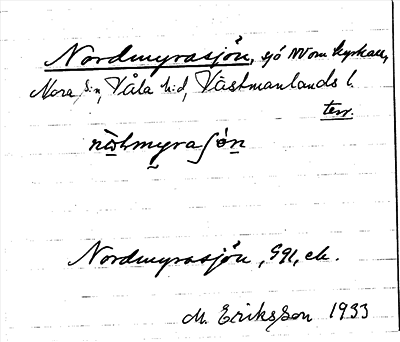 Nordmyrasjön, sjö NV om kyrkan,
Nora s:n, Våla h:d, Västmanlands l.
terr.
Nordmyrasjön, 991, ek.
M. Eriksson 1933